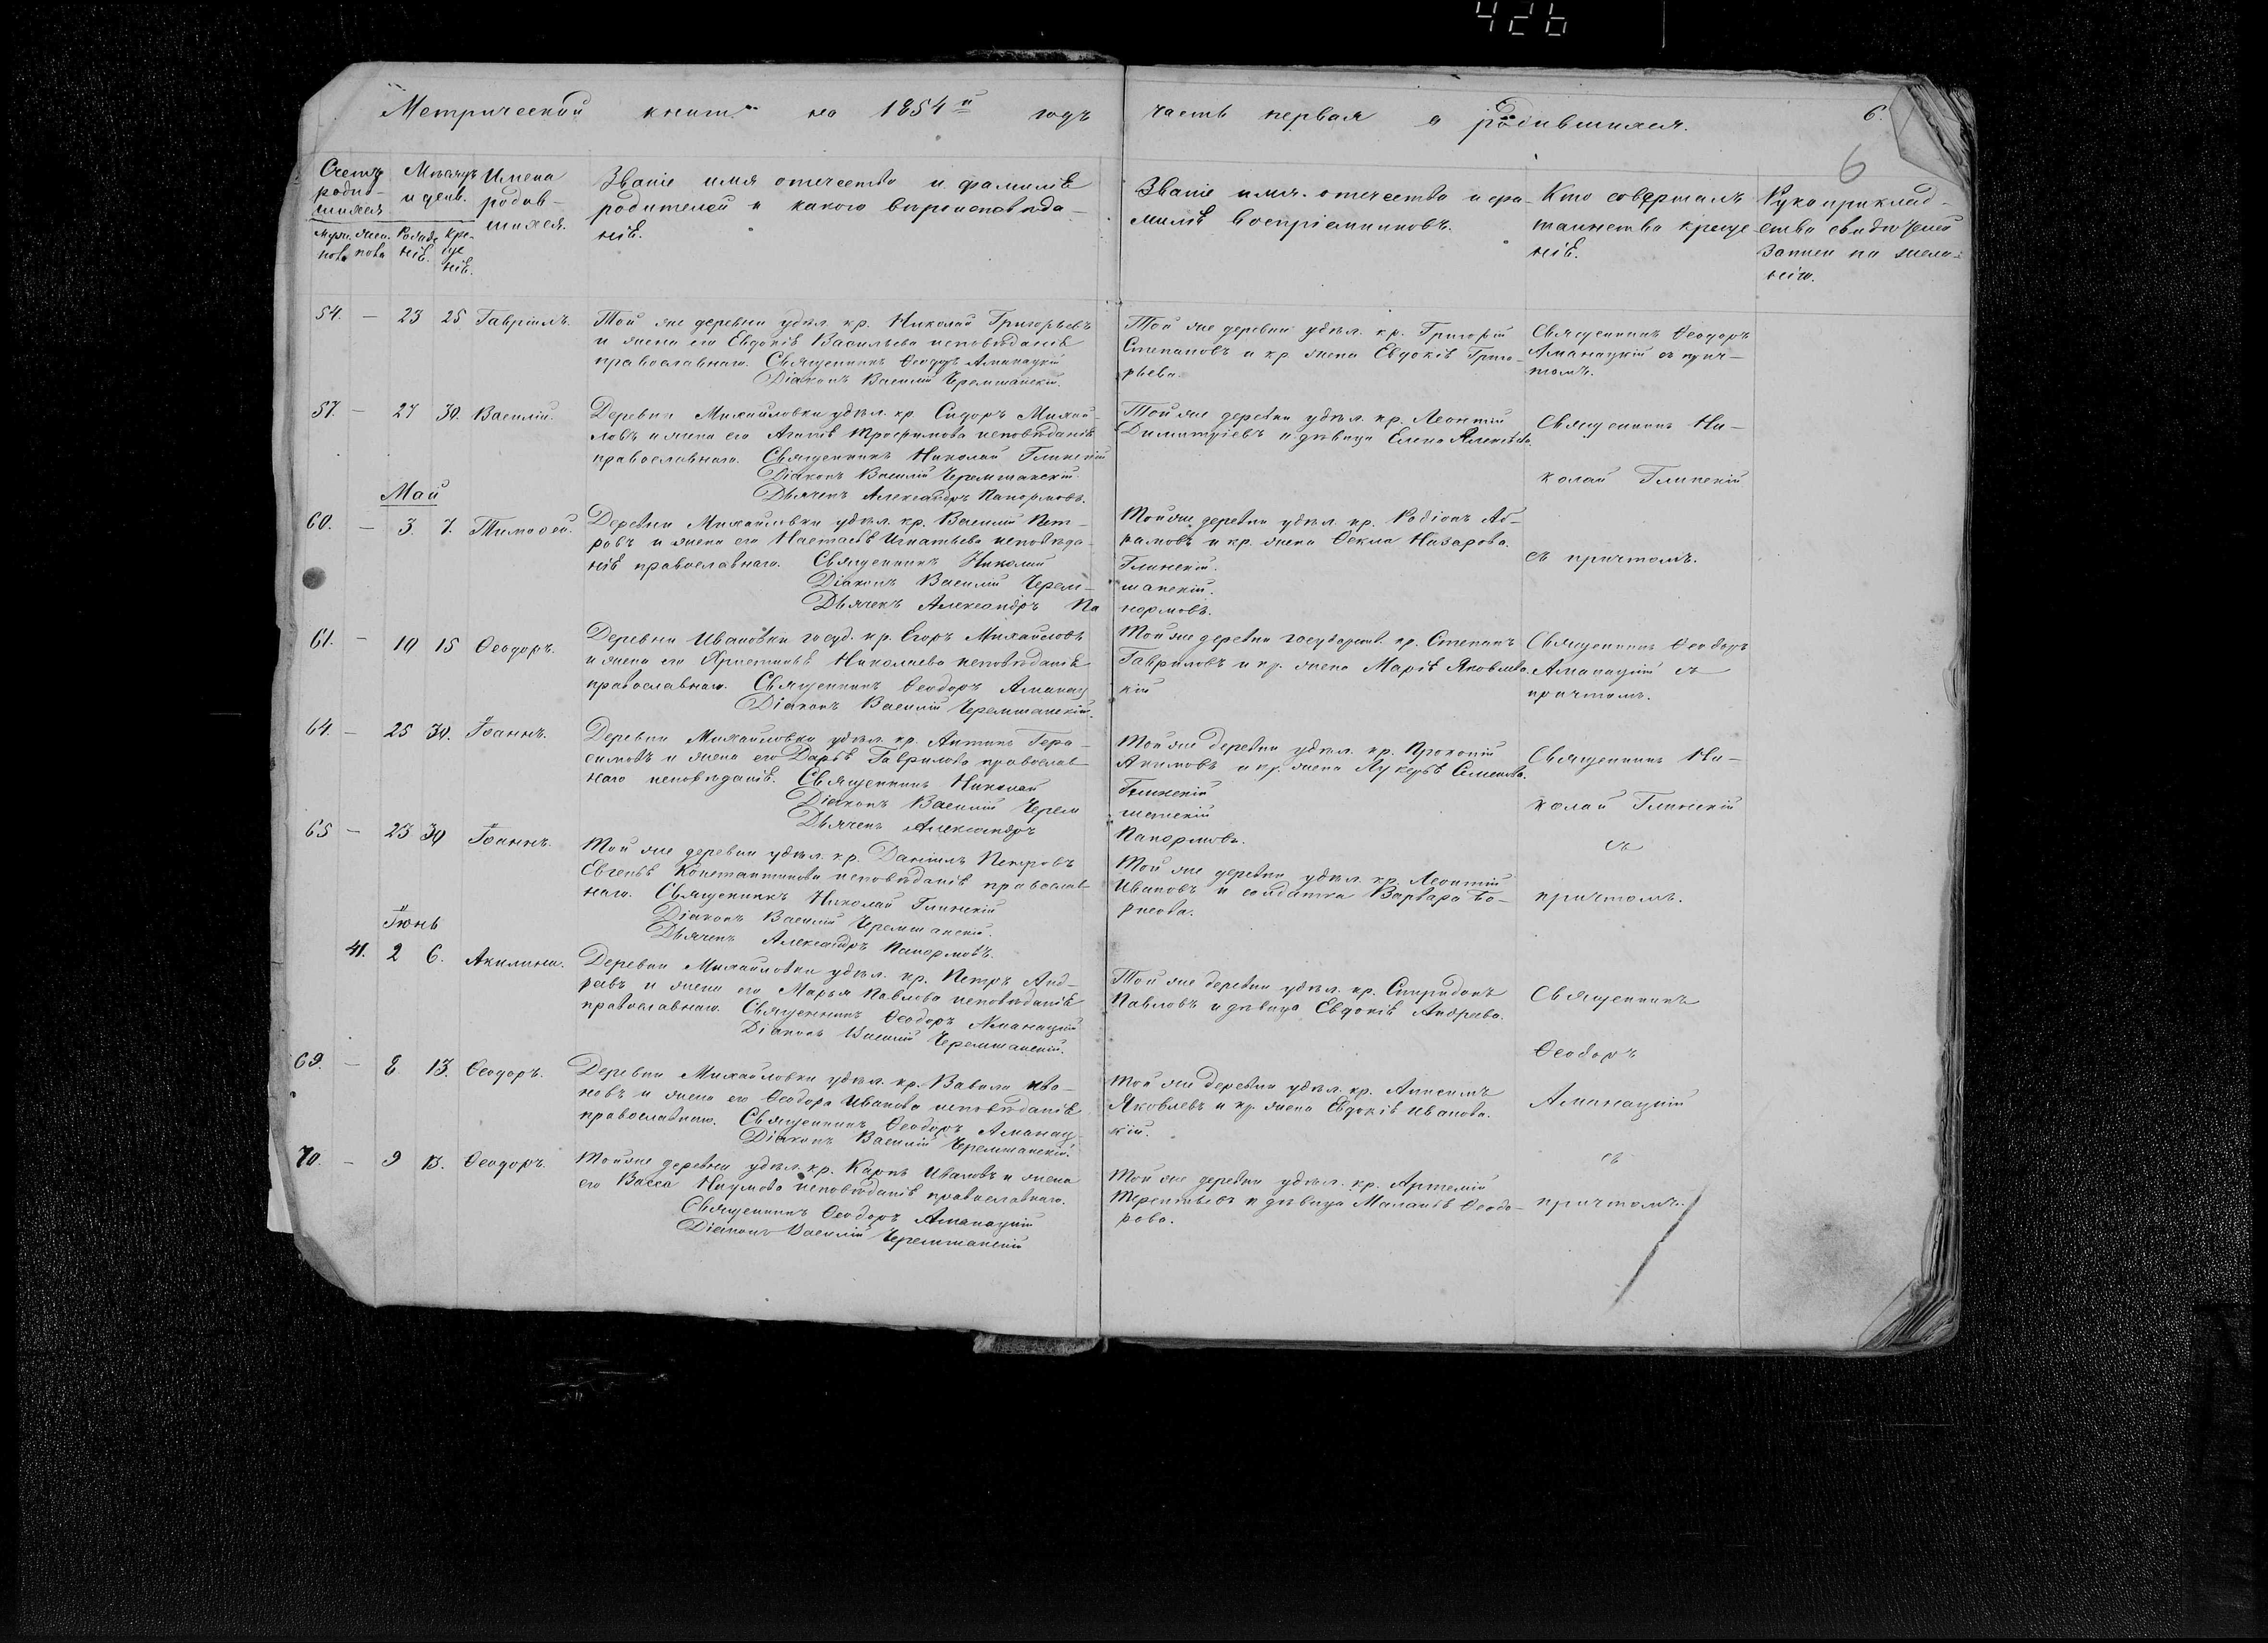 426
Метрической книги на 1854й годъ часть первая о родившихся. 6.
6
Счетъ родив-
шихся
Мѣсяцъ
и день.
Имена
родив-
шихся.
Званіе имя отечество и фамилiѣ
родителей и какого вѣроисповѣда-
нiѣ.
Званіе имя отечество и фа-
милiѣ воспріемниковъ.
Кто совершалъ
таинство креще
нiѣ.
Рукоприклад-
ство свидѣтелей
записи по жела-
нію.
муж. жен. Рожде Кре-
нiѣ. ще
нiѣ.
54. — 23 25 Гавріилъ.
Той же деревни удѣл. кр. Николай Григорьевъ
и жена его Евдокiѣ Васильева исповѣданiѣ
православнаго. Священникъ Ѳеодоръ Аманацкій
Діаконъ Василій Черемшанскій.
Той же деревни удѣл. кр. Григорій
Степановъ и кр. жена Евдокiѣ Григо-
рьева.
Священникъ Ѳеодоръ
Аманацкій съ прич-
томъ.
57. — 27 30. Василій.
Деревни Михайловки удѣл. кр. Сидоръ Михай-
ловъ и жена его Агапiѣ Трофимова исповѣданiѣ
православнаго. Священникъ Николай Глинскій
Діаконъ Василій Черемшанскій.
Дьячекъ Александръ Панормовъ.
Той же деревни удѣл. кр. Леонтій
Димитріевъ и дѣвица Елена Алексѣева.
Священникъ Ни-
колай Глинскій
Май
60. — 3. 7. Тимоѳей.
Деревни Михайловки удѣл. кр. Василій Пет-
ровъ и жена его Настасiѣ Игнатьева исповѣда-
нiѣ православнаго. Священникъ Николай
Діаконъ Василій Черем-
Дьячекъ Александръ Па
Той же деревни удѣл. кр. Родіонъ Аб-
рамовъ и кр. жена Ѳекла Назарова.
Глинскій.
шанскій.
нормовъ.
съ причтомъ.
61. — 10 15 Ѳеодоръ.
Деревни Ивановки госуд. кр. Егоръ Михайловъ
и жена его Христинiѣ Николаева исповѣданiѣ
православнаго. Священникъ Ѳеодоръ Аманац
Діаконъ Василій Черемшанскій.
Той же деревни государст. кр. Степанъ
Гавриловъ и кр. жена Марiѣ Яковлева.
кій
Священникъ Ѳеодоръ
Аманацкій съ
причтомъ.
64. — 25 30. Іоаннъ.
Деревни Михайловки удѣл. кр. Антипъ Гера-
симовъ и жена его Дарьѣ Гаврилова православ
наго исповѣданiѣ. Священникъ Николай
Діаконъ Василій Черем
Дьячекъ Александръ
Той же деревни удѣл. кр. Прокопій
Акимовъ и кр. жена Лукерьѣ Семенова.
Глинскій
шанскій
Панормовъ.
Священникъ Ни-
колай Глинскій
65 — 25 30 Іоаннъ.
Той же деревни удѣл. кр. Даніилъ Петровъ
Евгеньѣ Константинова исповѣданiѣ православ
наго. Священникъ Николай Глинскій
Діаконъ Василій Черемшанскій.
Дьячекъ Александръ Панормовъ.
Той же деревни удѣл. кр. Леонтій
Ивановъ и солдатка Варвара Бо-
рисова.
съ
причтомъ.
Іюнь
41. 2 6. Акилина.
Деревни Михайловки удѣл. кр. Петръ Анд-
реевъ и жена его Марья Павлова исповѣданiѣ
православнаго. Священникъ Ѳеодоръ Аманацкій
Діаконъ Василій Черемшанскій.
Той же деревни удѣл. кр. Спиридонъ
Павловъ и дѣвица Евдокiѣ Андреева.
Священникъ
Ѳеодоръ
69. — 8 13. Ѳеодоръ.
Деревни Михайловки удѣл. кр. Вавила Ива-
новъ и жена его Ѳеодора Иванова исповѣданiѣ
православнаго. Священникъ Ѳеодоръ Аманац-
Діаконъ Василій Черемшанскій.
Той же деревни удѣл. кр. Анисимъ
Яковлевъ и кр. жена Евдокiѣ Иванова.
кій.
Аманацкій
70. — 9 13. Ѳеодоръ.
Той же деревни удѣл. кр. Карпъ Ивановъ и жена
его Васса Наумова исповѣданiѣ православнаго.
Священникъ Ѳеодоръ Аманацкій
Діаконъ Василій Черемшанскій
Той же деревни удѣл. кр. Артемій
Терентьевъ и дѣвица Маланьѣ Ѳеодо-
рова.
съ
причтомъ.